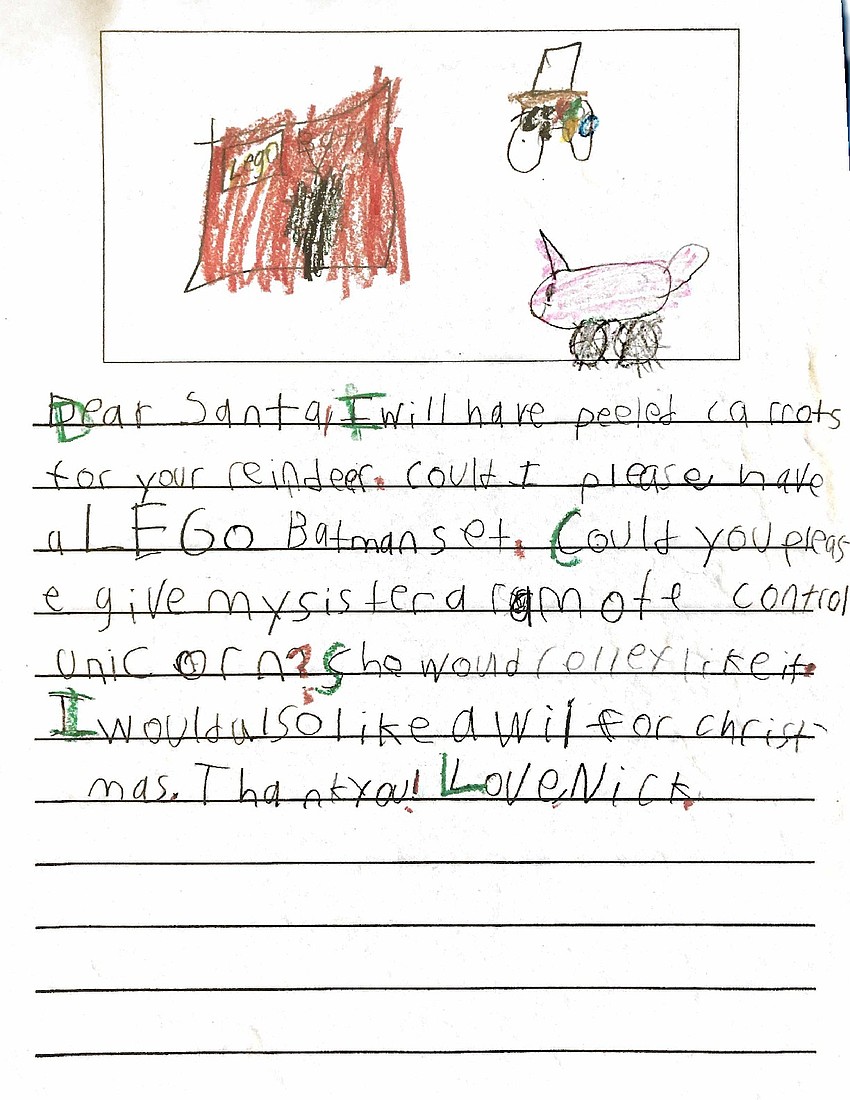 Lego
Dear Santa, I will have peeled carrots
for your reindeer. could I please have
a LEGO Batman set. Could you pleas
e give my sister a ramote control
unicorn? She would rolley like it.
I would also like a wii for christ-
mas. Thank you! Love, Nick.